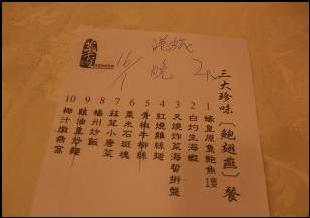 16/1
晚
2
三大珍味（鮑翅燕）餐
1 蠔皇原隻鮑魚1隻
2 白灼生海蝦
3 叉燒炸菜海蜇拼盤
4 紅燒雞絲翅
5 青椒牛柳絲
6 粟米石斑塊
7 蒜茸小唐菜
8 楊州炒飯
9 豉油皇炒麵
10 椰汁燉燕窩